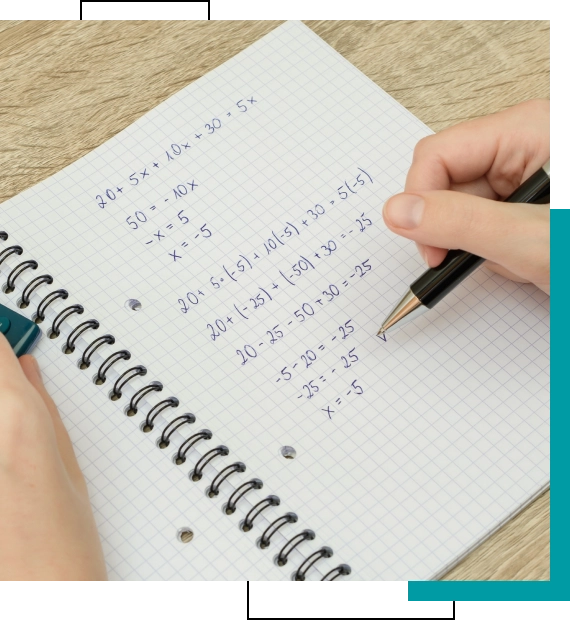 20+ 5x + 10x + 30 = 5x
50 = - 10x
-x = 5
x = -5
20+ 5·(-5) + 10(-5) + 30 = 5(-5)
20+ (-25) + (-50) + 30 = - 25
20 - 25 - 50 + 30 = -25
-5 - 20 = - 25
-25 = - 25
x = -5